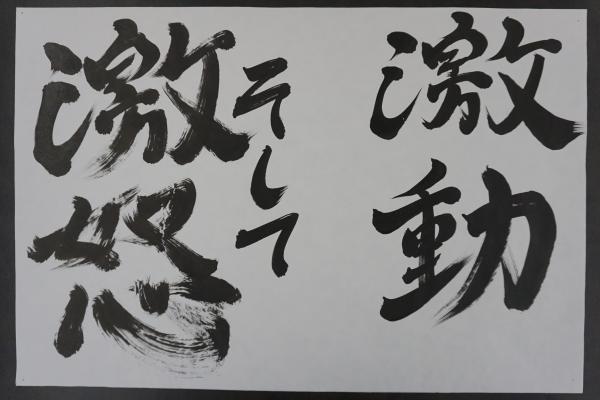 激動
そして
激怒